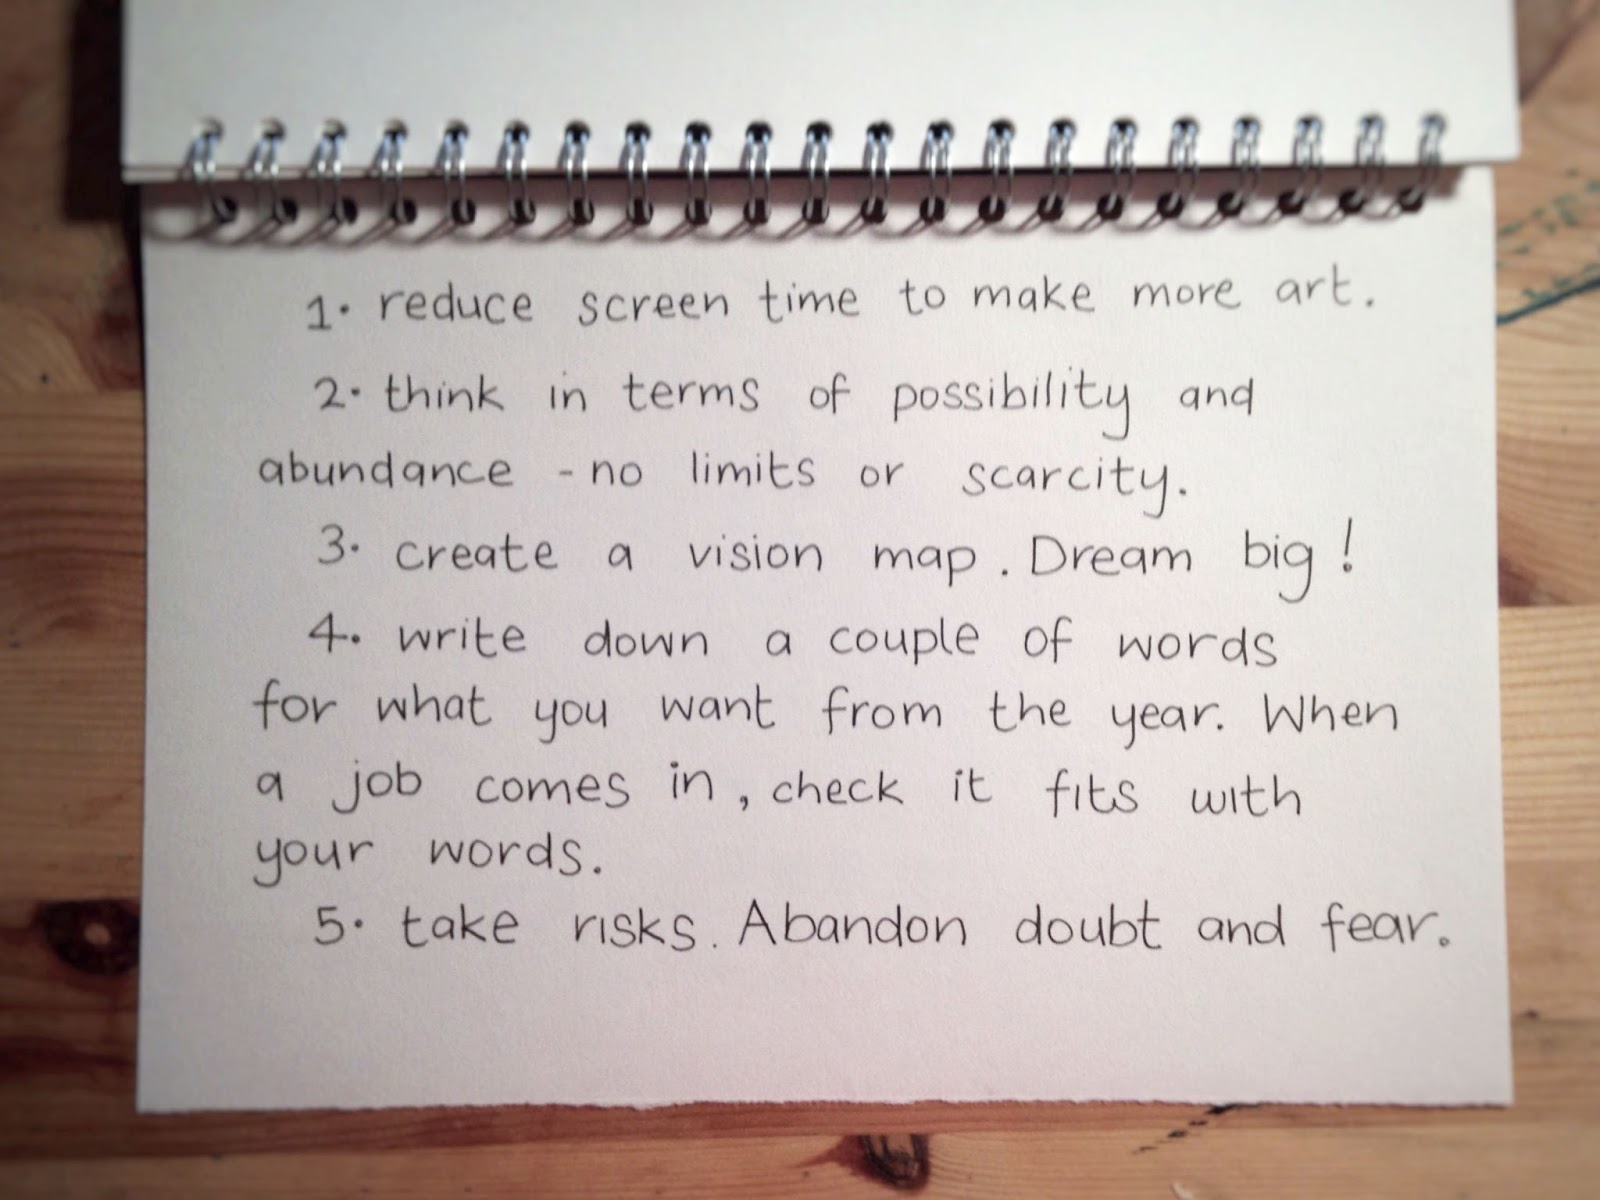 1. reduce screen time to make more art.
2. think in terms of possibility and
abundance - no limits or scarcity.
3. create a vision map. Dream big!
4. write down a couple of words
for what you want from the year. When
a job comes in, check it fits with
your words.
5. take risks. Abandon doubt and fear.